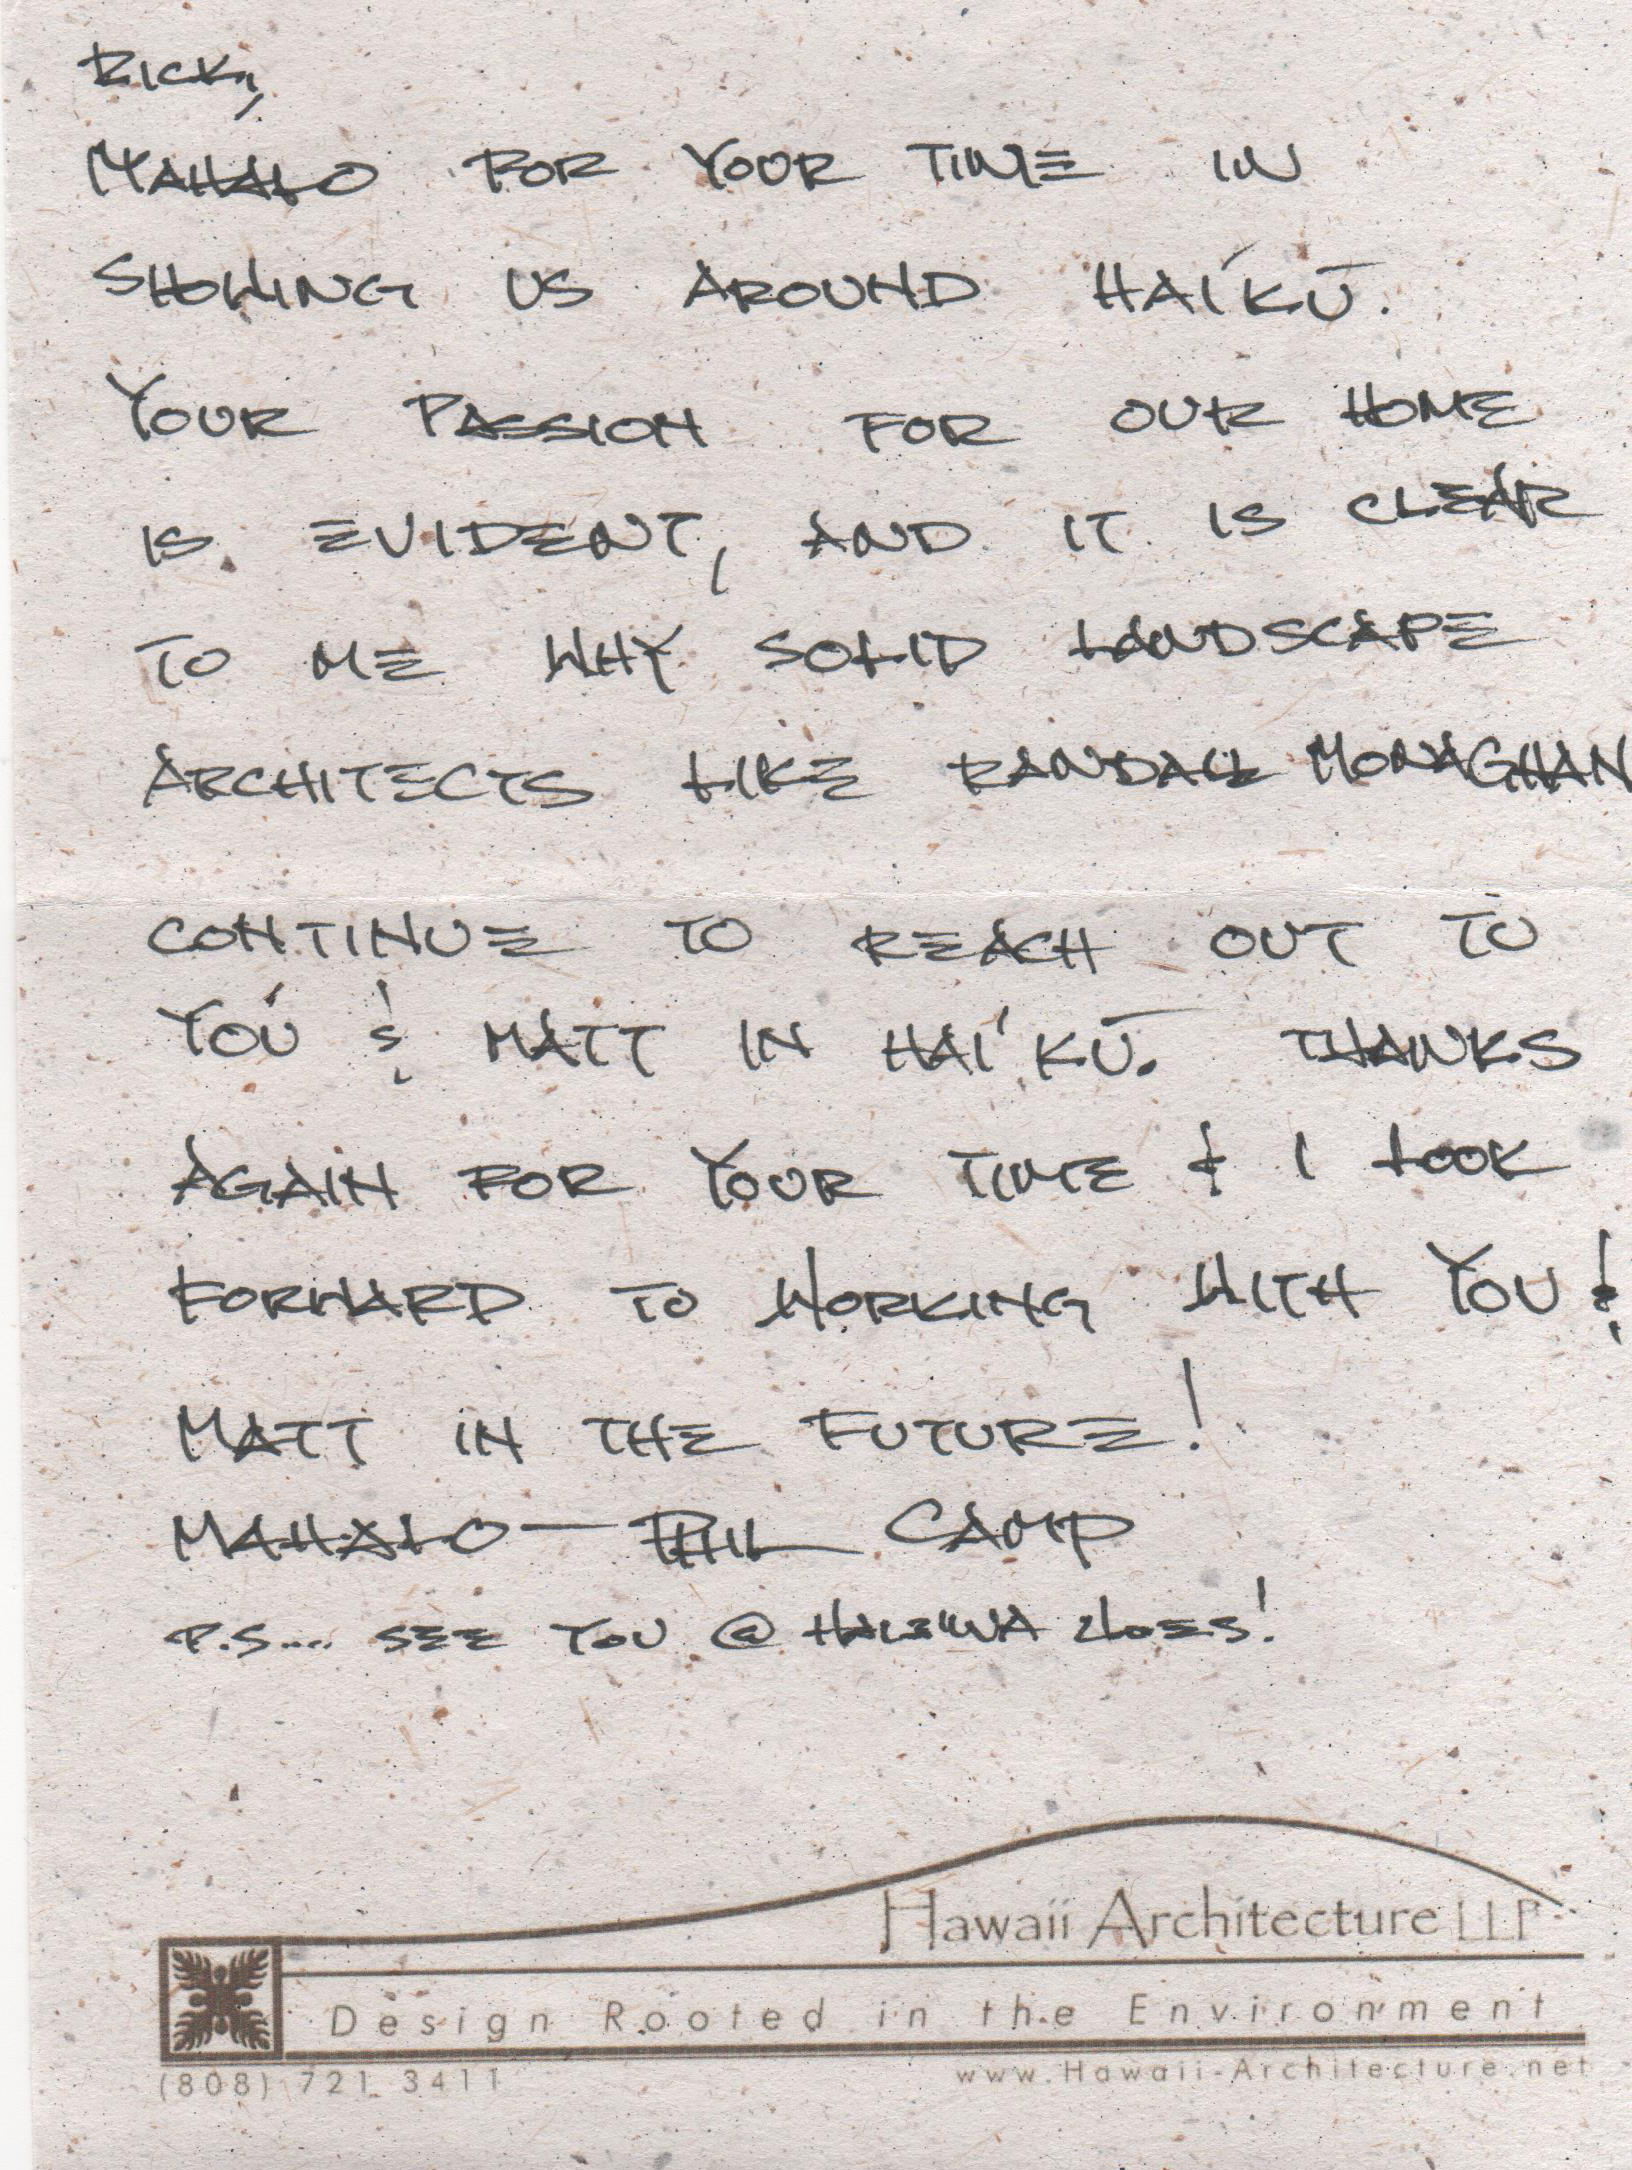 RICK,
MAHALO FOR YOUR TIME IN
SHOWING US AROUND HAI'KŪ.
YOUR PASSION FOR OUR HOME
IS EVIDENT, AND IT IS CLEAR
TO ME WHY SOLID LANDSCAPE
ARCHITECTS LIKE RANDALL MONAGHAN
CONTINUE TO REACH OUT TO
YOU & MATT IN HAI'KŪ. THANKS
AGAIN FOR YOUR TIME & I LOOK
FORWARD TO WORKING WITH YOU &
MATT IN THE FUTURE!
MAHALO — PHIL CAMP
P.S.... SEE YOU @ HALEIWA !
Hawaii Architecture LLP
Design Rooted in the Environment
(808) 721 3411 www.Hawaii-Architecture.net